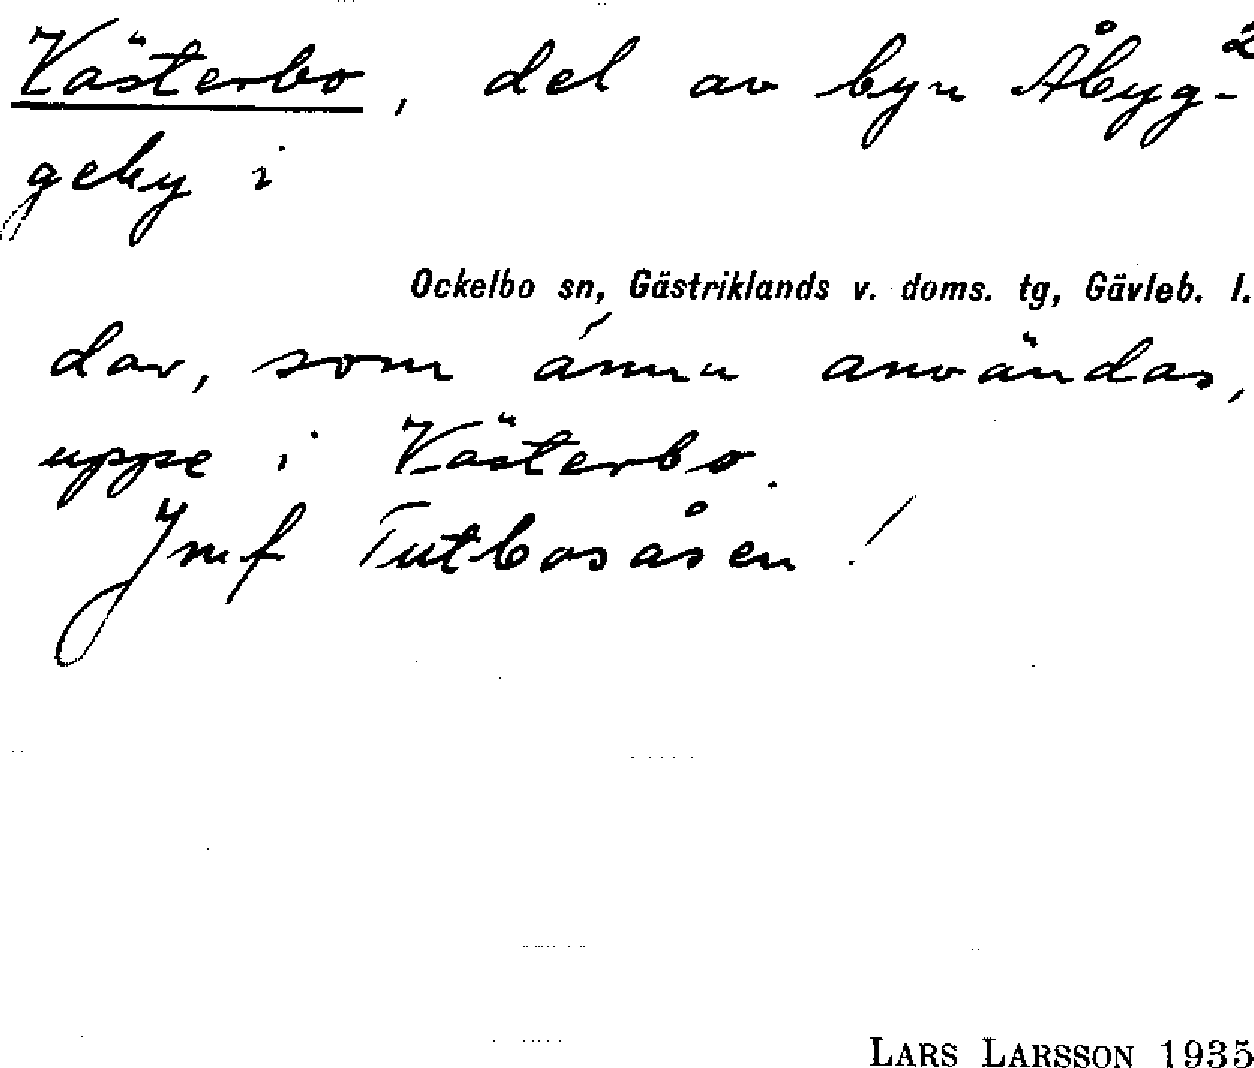 Västerbo, del av byn Åbyg- 2
geby i
Ockelbo sn, Gästriklands v. doms. tg, Gävleb. l.
dar, som ännu användas,
uppe i Västerbo.
Jmf Tutbosåsen!
LARS LARSSON 1935